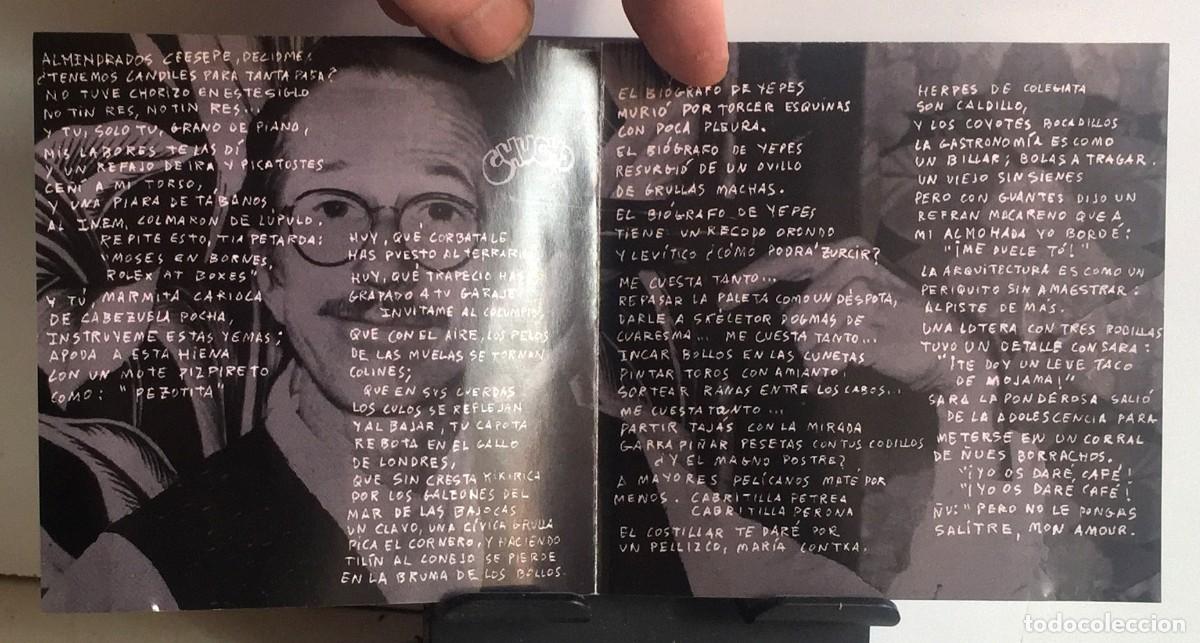 ALMINDRADOS CEESEPE, DECIDME:
¿TENEMOS CANDILES PARA TANTA PASA?
NO TUVE CHORIZO EN ESTE SIGLO
NO TIN RES, NO TIN RES...
Y TU, SOLO TU, GRANO DE PIANO,
MIS LABORES TE LAS DÍ
Y UN REFAJO DE IRA Y PICATOSTES
CEÑÍ A MI TORSO,
Y UNA PIARA DE TÁBANOS
AL INEM, COLMARON DE LÚPULO.
REPITE ESTO, TIA PETARDA:
"MOSES EN BORNES,
ROLEX AT BOXES"
Y TÚ, MARMITA CARIOCA
DE CABEZUELA POCHA,
INSTRUYEME ESTAS YEMAS;
APODA A ESTA HIENA
CON UN MOTE PIZPIRETO
COMO: "PEZOTITA"
CHUCHO
HUY, QUÉ CORBATA LE
HAS PUESTO AL TERRARIO
HUY, QUÉ TRAPECIO HAS
GRAPADO A TU GARAJE
INVITAME AL COLUMPIO,
QUE CON EL AIRE, LOS PELOS
DE LAS MUELAS SE TORNAN
COLINES;
QUE EN SUS CUERDAS
LOS CULOS SE REFLEJAN
Y AL BAJAR, TU CAPOTA
REBOTA EN EL GALLO
DE LONDRES,
QUE SIN CRESTA KIKIRICA
POR LOS GALZONES DEL
MAR DE LAS BAJOCAS
UN CLAVO, UNA CÍVICA GRULLA
PICA EL CORNERO, Y HACIENDO
TILÍN AL CONEJO SE PIERDE
EN LA BRUMA DE LOS BOLLOS.
EL BIÓGRAFO DE YEPES
MURIÓ POR TORCER ESQUINAS
CON POCA PLEURA.
EL BIÓGRAFO DE YEPES
RESURGIÓ DE UN OVILLO
DE GRULLAS MACHAS.
EL BIÓGRAFO DE YEPES
TIENE UN RECODO ORONDO
Y LEVÍTICO ¿CÓMO PODRÁ ZURCIR?
ME CUESTA TANTO...
REPASAR LA PALETA COMO UN DÉSPOTA,
DARLE A SKÉLETOR DOGMAS DE
CUARESMA... ME CUESTA TANTO...
INCAR BOLLOS EN LAS CUNETAS
PINTAR TOROS CON AMIANTO,
SORTEAR RANAS ENTRE LOS CABOS...
ME CUESTA TANTO...
PARTIR TAJÁS CON LA MIRADA
GARRAPIÑAR PESETAS CON TUS CODILLOS
¿Y EL MAGNO POSTRE?
A MAYORES PELÍCANOS MATE POR
MENOS. CABRITILLA PETREA
CABRITILLA PERONA
EL COSTILLAR TE DARÉ POR
UN PELLIZCO, MARÍA CONTXA.
HERPES DE COLEGIATA
SON CALDILLO,
Y LOS COYOTES BOCADILLOS
LA GASTRONOMÍA ES COMO
UN BILLAR; BOLAS A TRAGAR.
UN VIEJO SIN SIENES
PERO CON GUANTES DIJO UN
REFRAN MACARENO QUE A
MI ALMOHADA YO BORDÉ:
"¡ME DUELE TÓ!"
LA ARQUITECTURA ES COMO UN
PERIQUITO SIN AMAESTRAR:
ALPISTE DE MÁS.
UNA LOTERA CON TRES RODILLAS
TUVO UN DETALLE CON SARA:
"¡TE DOY UN LEVE TACO
DE MOJAMA!"
SARA LA PONDEROSA SALIÓ
DE LA ADOLESCENCIA PARA
METERSE EN UN CORRAL
DE ÑUES BORRACHOS.
"¡YO OS DARÉ CAFÉ!
"¡YO OS DARÉ CAFÉ!
ÑU: "PERO NO LE PONGAS
SALITRE, MON AMOUR.
todocoleccion